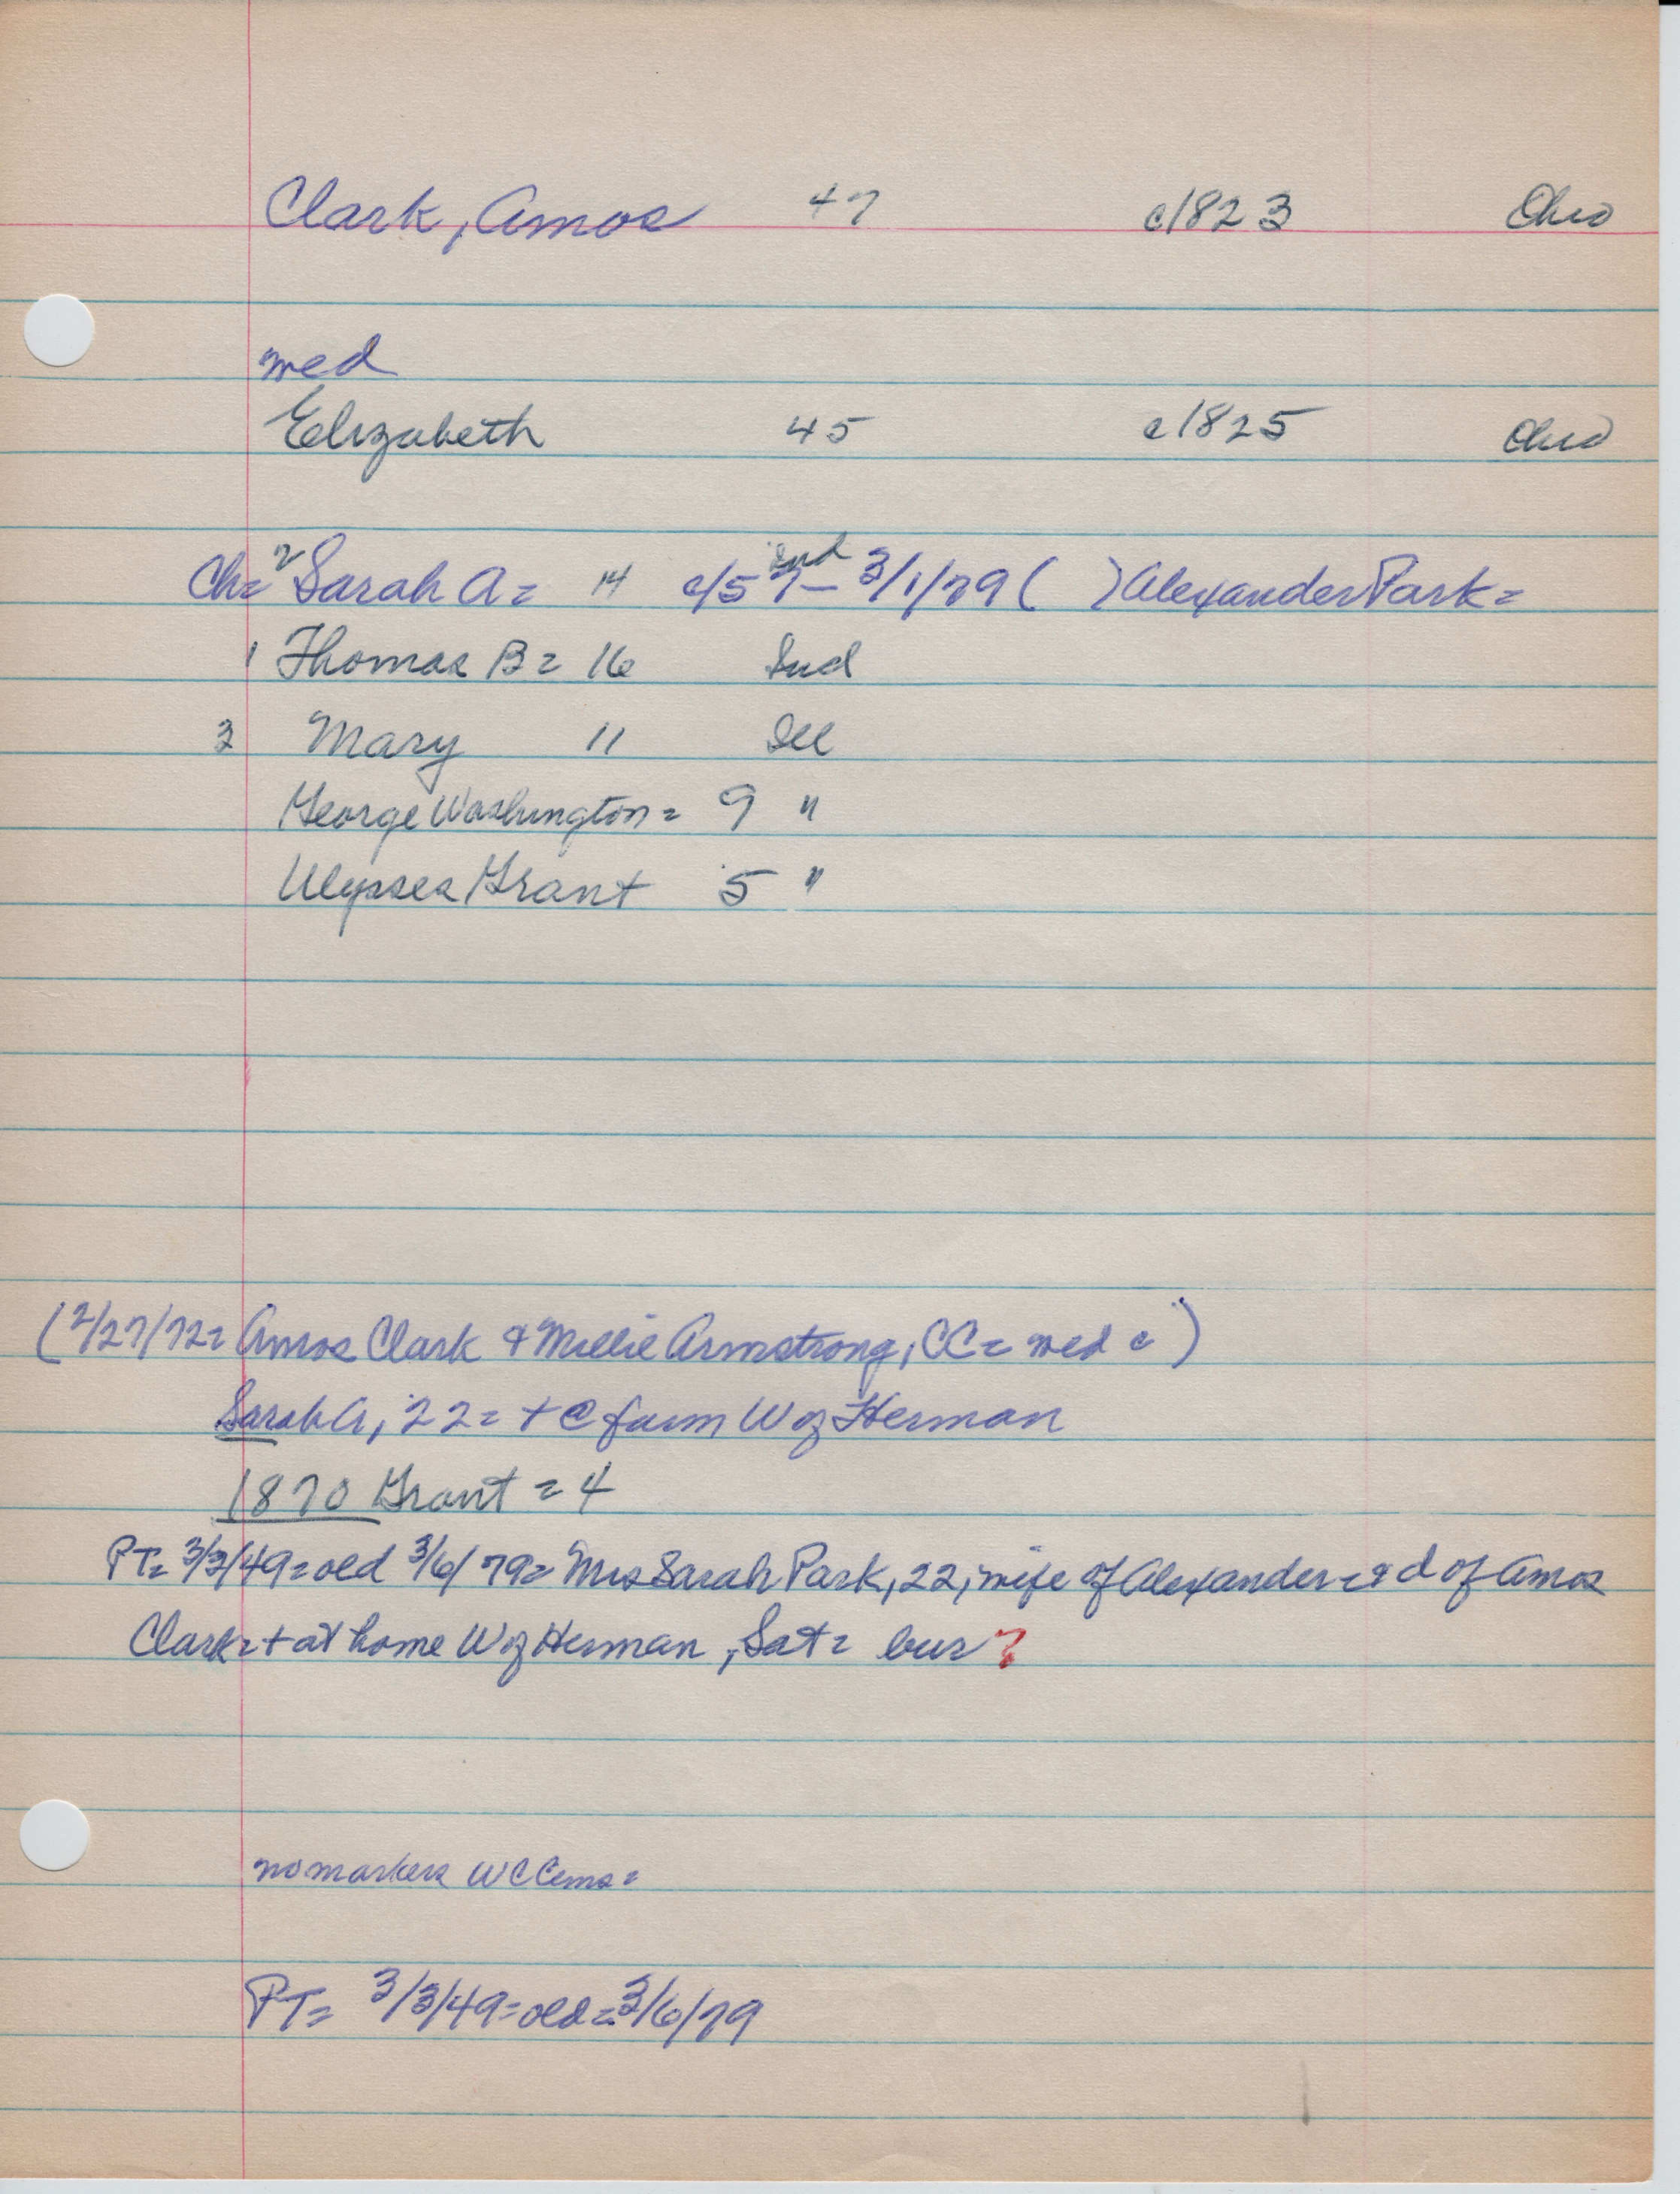 Clark, Amos 47 c1823 Ohio
med
Elizabeth 45 c1825 Ohio
Ind
Ch= 2 Sarah A= 14 c/57- 3/1/79 ( ) Alexander Park=
1 Thomas B= 16 Ind
3 Mary 11 Ill
George Washington= 9 "
Ulysses Grant 5 "
(2/27/72= Amos Clark & Millie Armstrong, CC= med c)
Sarah A, 22= + @ farm W of Herman
1870 Grant = 4
PT= 3/3/49=old 3/6/79= Mrs Sarah Park, 22, wife of Alexander= & d of Amos
Clark=+ at home W of Herman, Sat= bur?
no markers WC Cems=
PT= 3/3/49=old=3/6/79